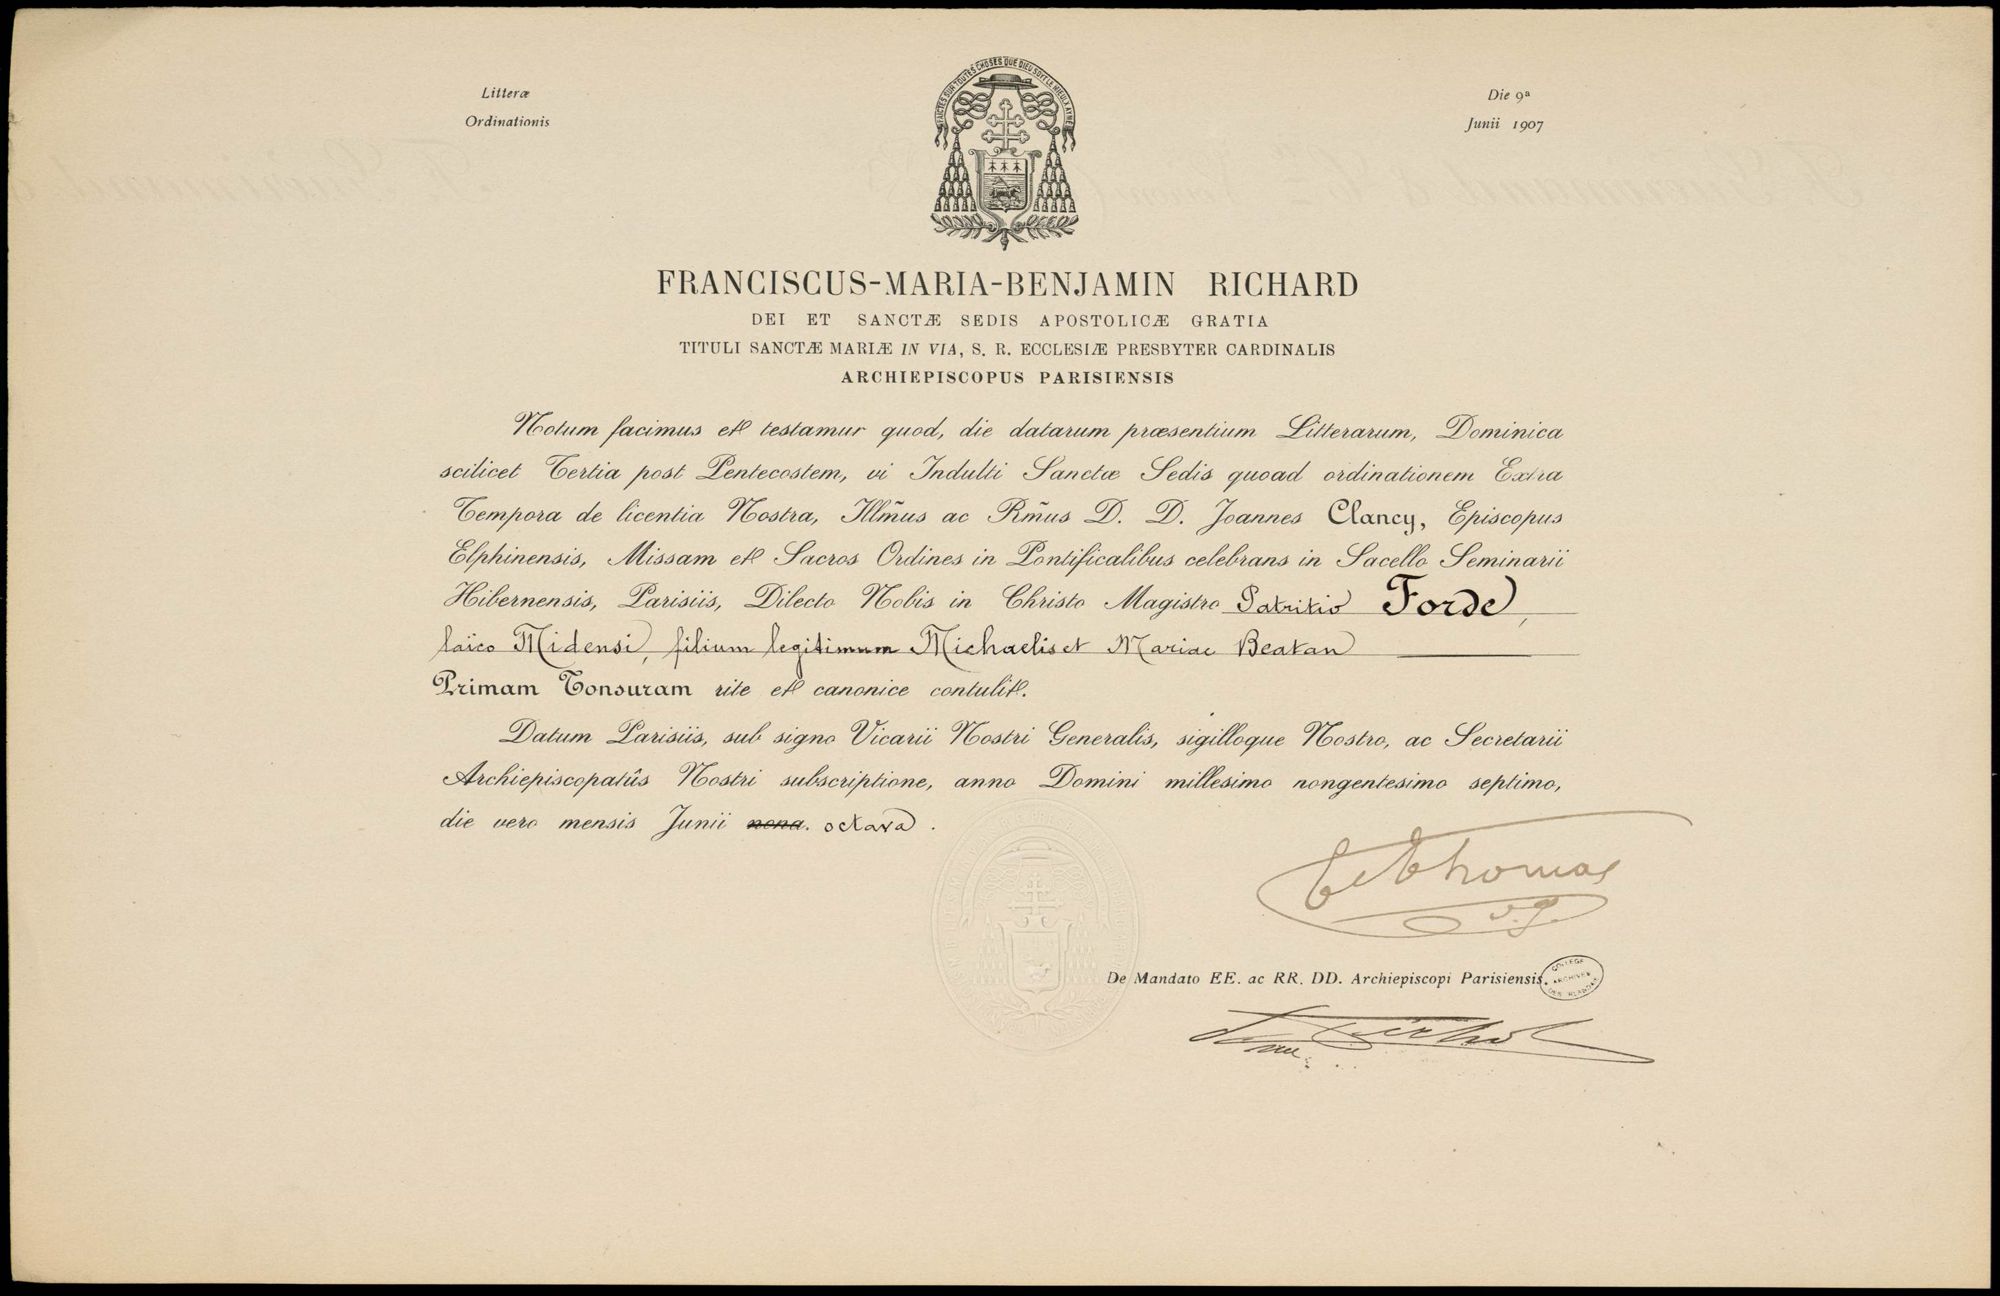 Litteræ
Ordinationis
Die 9ª
Junii 1907
FAICTES SUR TOUTES CHOSES QUE DIEU SOIT LE MIEULX AYMÉ
FRANCISCUS-MARIA-BENJAMIN RICHARD
DEI ET SANCTÆ SEDIS APOSTOLICÆ GRATIA
TITULI SANCTÆ MARIÆ IN VIA, S. R. ECCLESIÆ PRESBYTER CARDINALIS
ARCHIEPISCOPUS PARISIENSIS
Notum facimus et testamur quod, die datarum præsentium Litterarum, Dominica
scilicet Tertia post Pentecostem, vi Indulti Sanctæ Sedis quoad ordinationem Extra
Tempora de licentia Nostra, Illm̃us ac Rm̃us D. D. Joannes Clancy, Episcopus
Elphinensis, Missam et Sacros Ordines in Pontificalibus celebrans in Sacello Seminarii
Hibernensis, Parisiis, Dilecto Nobis in Christo Magistro Patritio Forde,
laïco Midensi, filium legitimum Michaelis et Mariae Beatan
Primam Tonsuram rite et canonice contulit.
Datum Parisiis, sub signo Vicarii Nostri Generalis, sigilloque Nostro, ac Secretarii
Archiepiscopatûs Nostri subscriptione, anno Domini millesimo nongentesimo septimo,
die vero mensis Junii nona. octava.
Thomas
v. g.
De Mandato EE. ac RR. DD. Archiepiscopi Parisiensis.
COLLEGE
ARCHIVES
DES IRLANDAIS